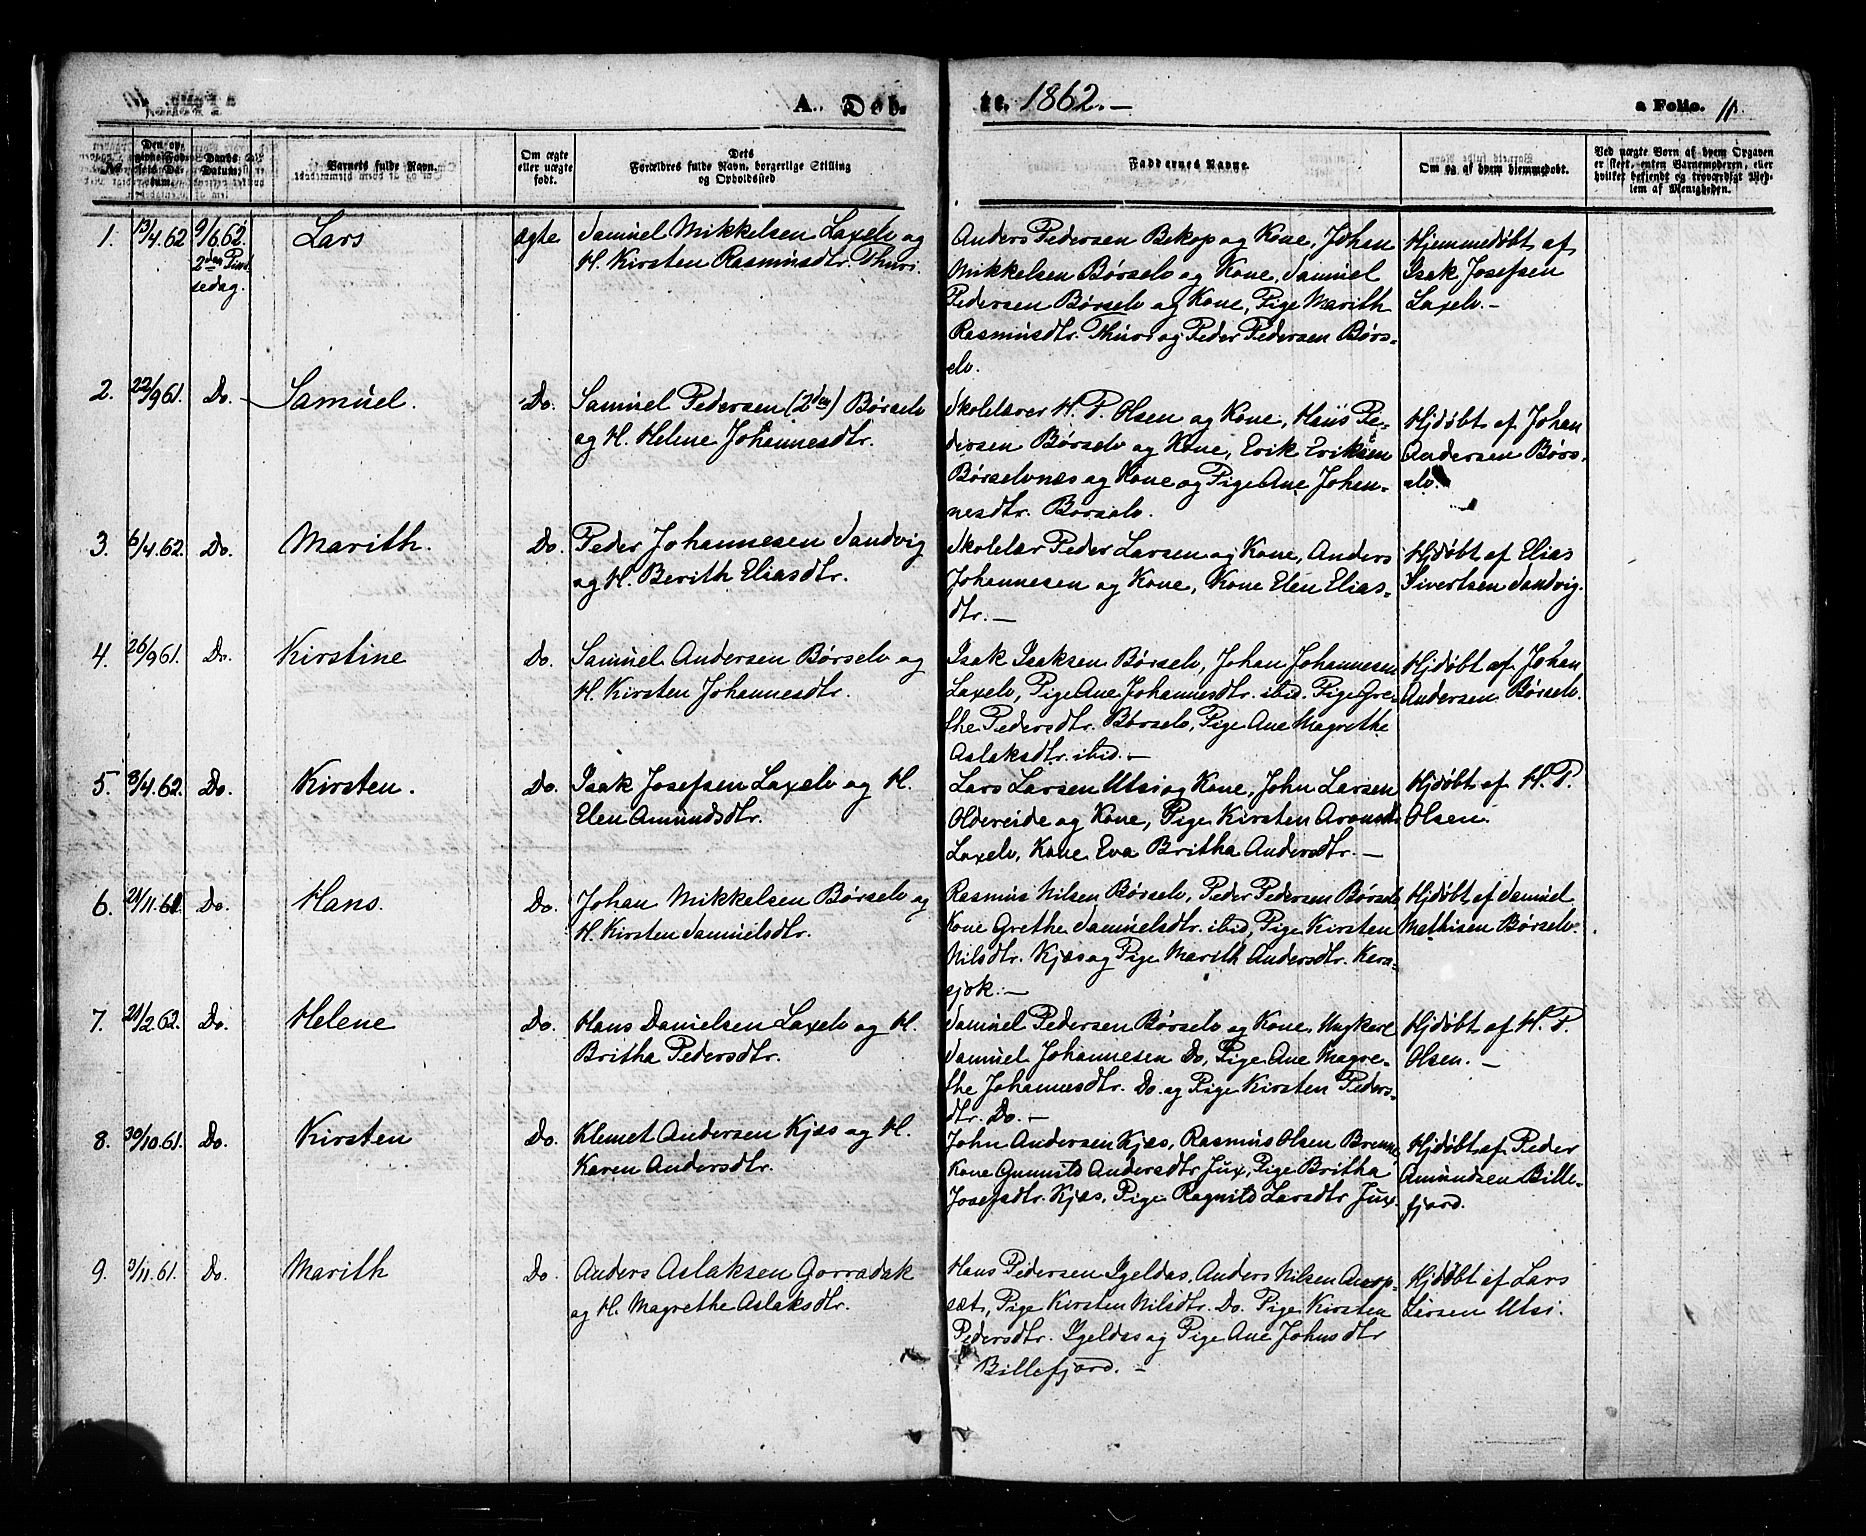 A. Døb-
te. 1862. —
a Folio. 11.
No
Den op-
givne Fød-
sels Da-
tum.
Daabs
Datum.
Barnets fulde Navn.
Om ægte
eller uægte
født.
Dets
Forældres fulde Navn, borgerlige Stilling
og Opholdssted
Faddernes Navne.
Om og af hvem hjemmedøbt.
Ved uægte Born af hvem Opgaven
er skeet, enten Barnemoderen, eller
hvilket bekjendt og troværdigt Med-
lem af Menigheden.
1. 13/4.62 9/6.62. Lars ægte Samuel Mikkelsen Laxelv og
2den Pind-
sedag.
H. Kirsten Rasmusdtr. Thuri.
Anders Pedersen Bekop og Kone, Johan
Mikkelsen Børselv og Kone, Samuel
Pedersen Børselv og Kone, Pige Marith
Rasmusdtr. Thuri og Peder Pedersen Børs-
elv.
Hjemmedøbt af
Isak Josefsen
Laxelv. —
2. 22/9 61. Do. Samuel. Do. Samuel Pedersen (2den) Børselv
og H. Helene Johannesdtr.
Skolelærer H. P. Olsen og Kone, Hans Pe-
dersen Børselv og Kone, Erik Eriksen
Børselvnæs og Kone og Pige Ane Johan-
nesdtr. Børselv.
Hjdøbt af Johan
Andersen Børs-
elv.
3. 6/4.62. Do. Marith. Do. Peder Johannesen Sandvig
og H. Berith Eliasdtr.
Skolelær Peder Larsen og Kone, Anders
Johannesen og Kone, Kone Elen Elias-
dtr. —
Hjdøbt af Elias
Sivertsen Sandvig.
4. 26/9 61. Do. Kirstine Do. Samuel Andersen Børselv og
H. Kirsten Johannesdtr.
Isak Isaksen Børselv, Johan Johannesen
Laxelv, Pige Ane Johannesdtr. ibid. Pige Gre-
the Pedersdtr. Børselv, Pige Ane Magrethe
Aslaksdtr. ibid. —
Hjdøbt af Johan
Andersen Børselv.
5. 8/4.62. Do. Kirsten. Do. Isak Josefsen Laxelv og H.
Elen Amundsdtr.
Lars Larsen Utsi og Kone, John Larsen
Oldereide og Kone, Pige Kirsten
Laxelv, Kone Eva Britha Andersdtr. —
Hjdøbt af H. P.
Olsen.
6. 21/11.61. Do. Hans. Do. Johan Mikkelsen Børselv og
H. Kirsten Samuelsdtr.
Rasmus Nilsen Børselv, Peder Pedersen Børselv
Kone Grethe Samuelsdtr. ibid, Pige Kirsten
Nilsdtr. Kjæs og Pige Marith Andersdtr. Kara-
sjok. —
Hjdøbt af Samuel
Mathisen Børselv.
7. 21/2.62. Do. Helene Do. Hans Danielsen Laxelv og H.
Britha Pedersdtr.
Samuel Pedersen Børselv og Kone, Ungkarl
Samuel Johannesen Do, Pige Ane Magre-
the Johannesdtr. Do. og Pige Kirsten Peders-
dtr. Do. —
Hjdøbt af H. P.
Olsen. —
8. 30/10.61. Do. Kirsten Do. Klemet Andersen Kjæs og H.
Karen Andersdtr.
John Andersen Kjæs, Rasmus Olsen Brenne
Kone Gunnild Andersdtr Jux, Pige Britha
Josefsdtr. Kjæs, Pige Ragnild Larsdtr Jux.
Hjdøbt af Peder
Amundsen Bille-
fjord.
9. 3/11.61. Do. Marith Do. Anders Aslaksen Gorradak
og H. Magrethe Aslaksdtr.
Hans Pedersen Igeldas, Anders Nilsen
Pige Kirsten Nilsdtr. Do. Pige Kirsten
Pedersdtr. Igeldas og Pige Ane Johnsdtr
Billefjord. —
Hjdøbt af Lars
Larsen Utsi.